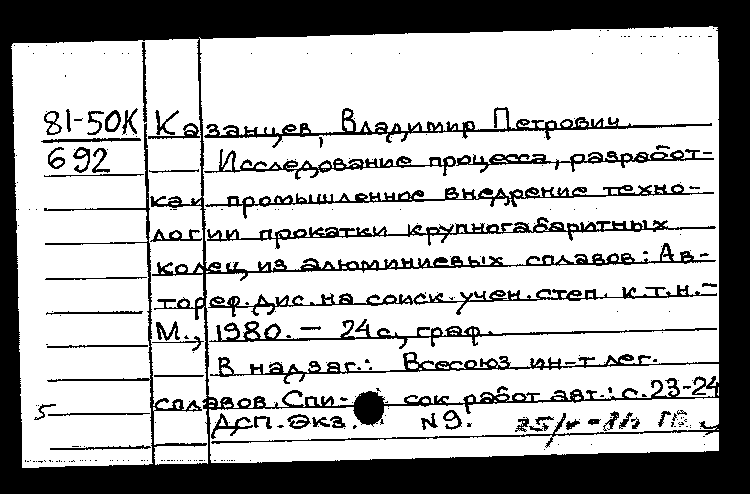 81-50К Казанцев, Владимир Петрович
692 Исследование процесса, разработ-
ка и промышленное внедрение техно-
логии прокатки крупногабаритных
колец из алюминиевых сплавов: Ав-
тореф. дис. на соиск. учен. степ. к.т.н. -
М., 1980. - 24 с., граф.
В надзаг.: Всесоюз ин-т лег.
сплавов. Спи- сок работ авт.: с. 23-24
5 ДСП. Экз. N9.